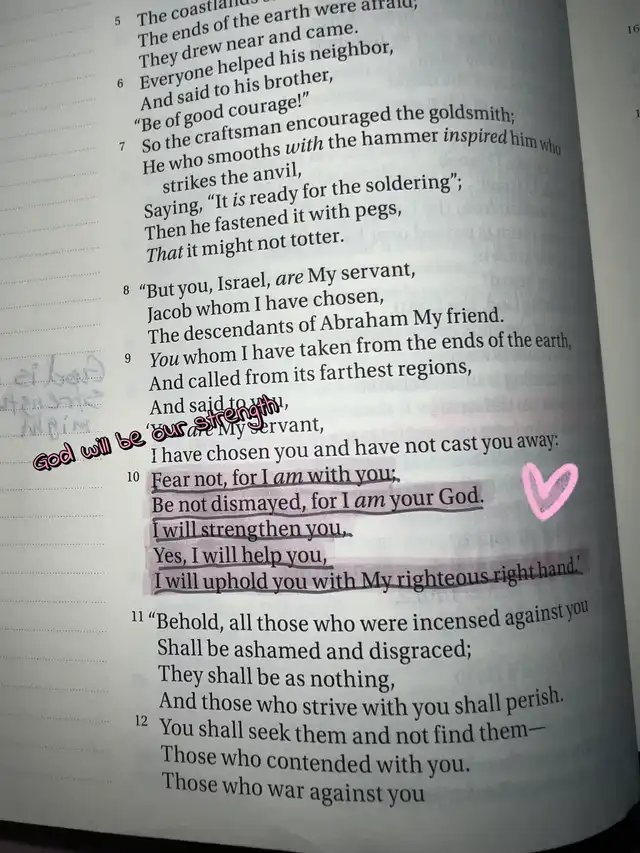 5 The coastlands
The ends of the earth were afraid;
They drew near and came.
6 Everyone helped his neighbor,
And said to his brother,
“Be of good courage!”
7 So the craftsman encouraged the goldsmith;
He who smooths with the hammer inspired him who
strikes the anvil,
Saying, “It is ready for the soldering”;
Then he fastened it with pegs,
That it might not totter.
8 “But you, Israel, are My servant,
Jacob whom I have chosen,
The descendants of Abraham My friend.
9 You whom I have taken from the ends of the earth,
And called from its farthest regions,
And said to you,
‘You are My servant,
God will be our strength
I have chosen you and have not cast you away:
10 Fear not, for I am with you;
Be not dismayed, for I am your God.
I will strengthen you,
Yes, I will help you,
I will uphold you with My righteous right hand.’
11 “Behold, all those who were incensed against you
Shall be ashamed and disgraced;
They shall be as nothing,
And those who strive with you shall perish.
12 You shall seek them and not find them—
Those who contended with you.
Those who war against you
16